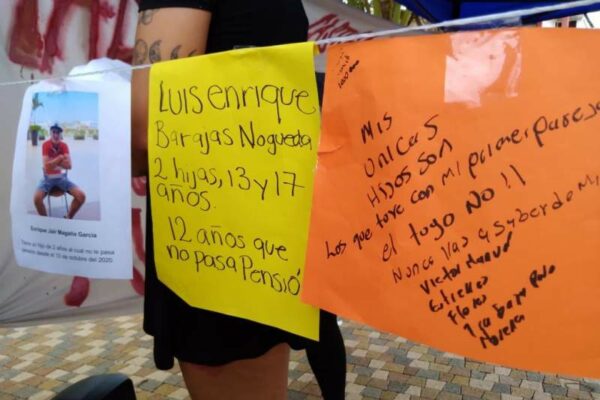 Enrique Jair Magaña García
Tiene un hijo de 2 años al cual no le pasa
pensión desde el 15 de octubre del 2020.
Luis enrique
Barajas Nogueda
2 hijas, 13 y 17
años.
12 años que
no pasa Pensió
Mis
unicas
Hijos son
Los que tuve con Mi primer Pareja
el tuyo No!!
Nunca Vas a Syber de Mi
Victor Manuel
Estrella
Flores
Morena